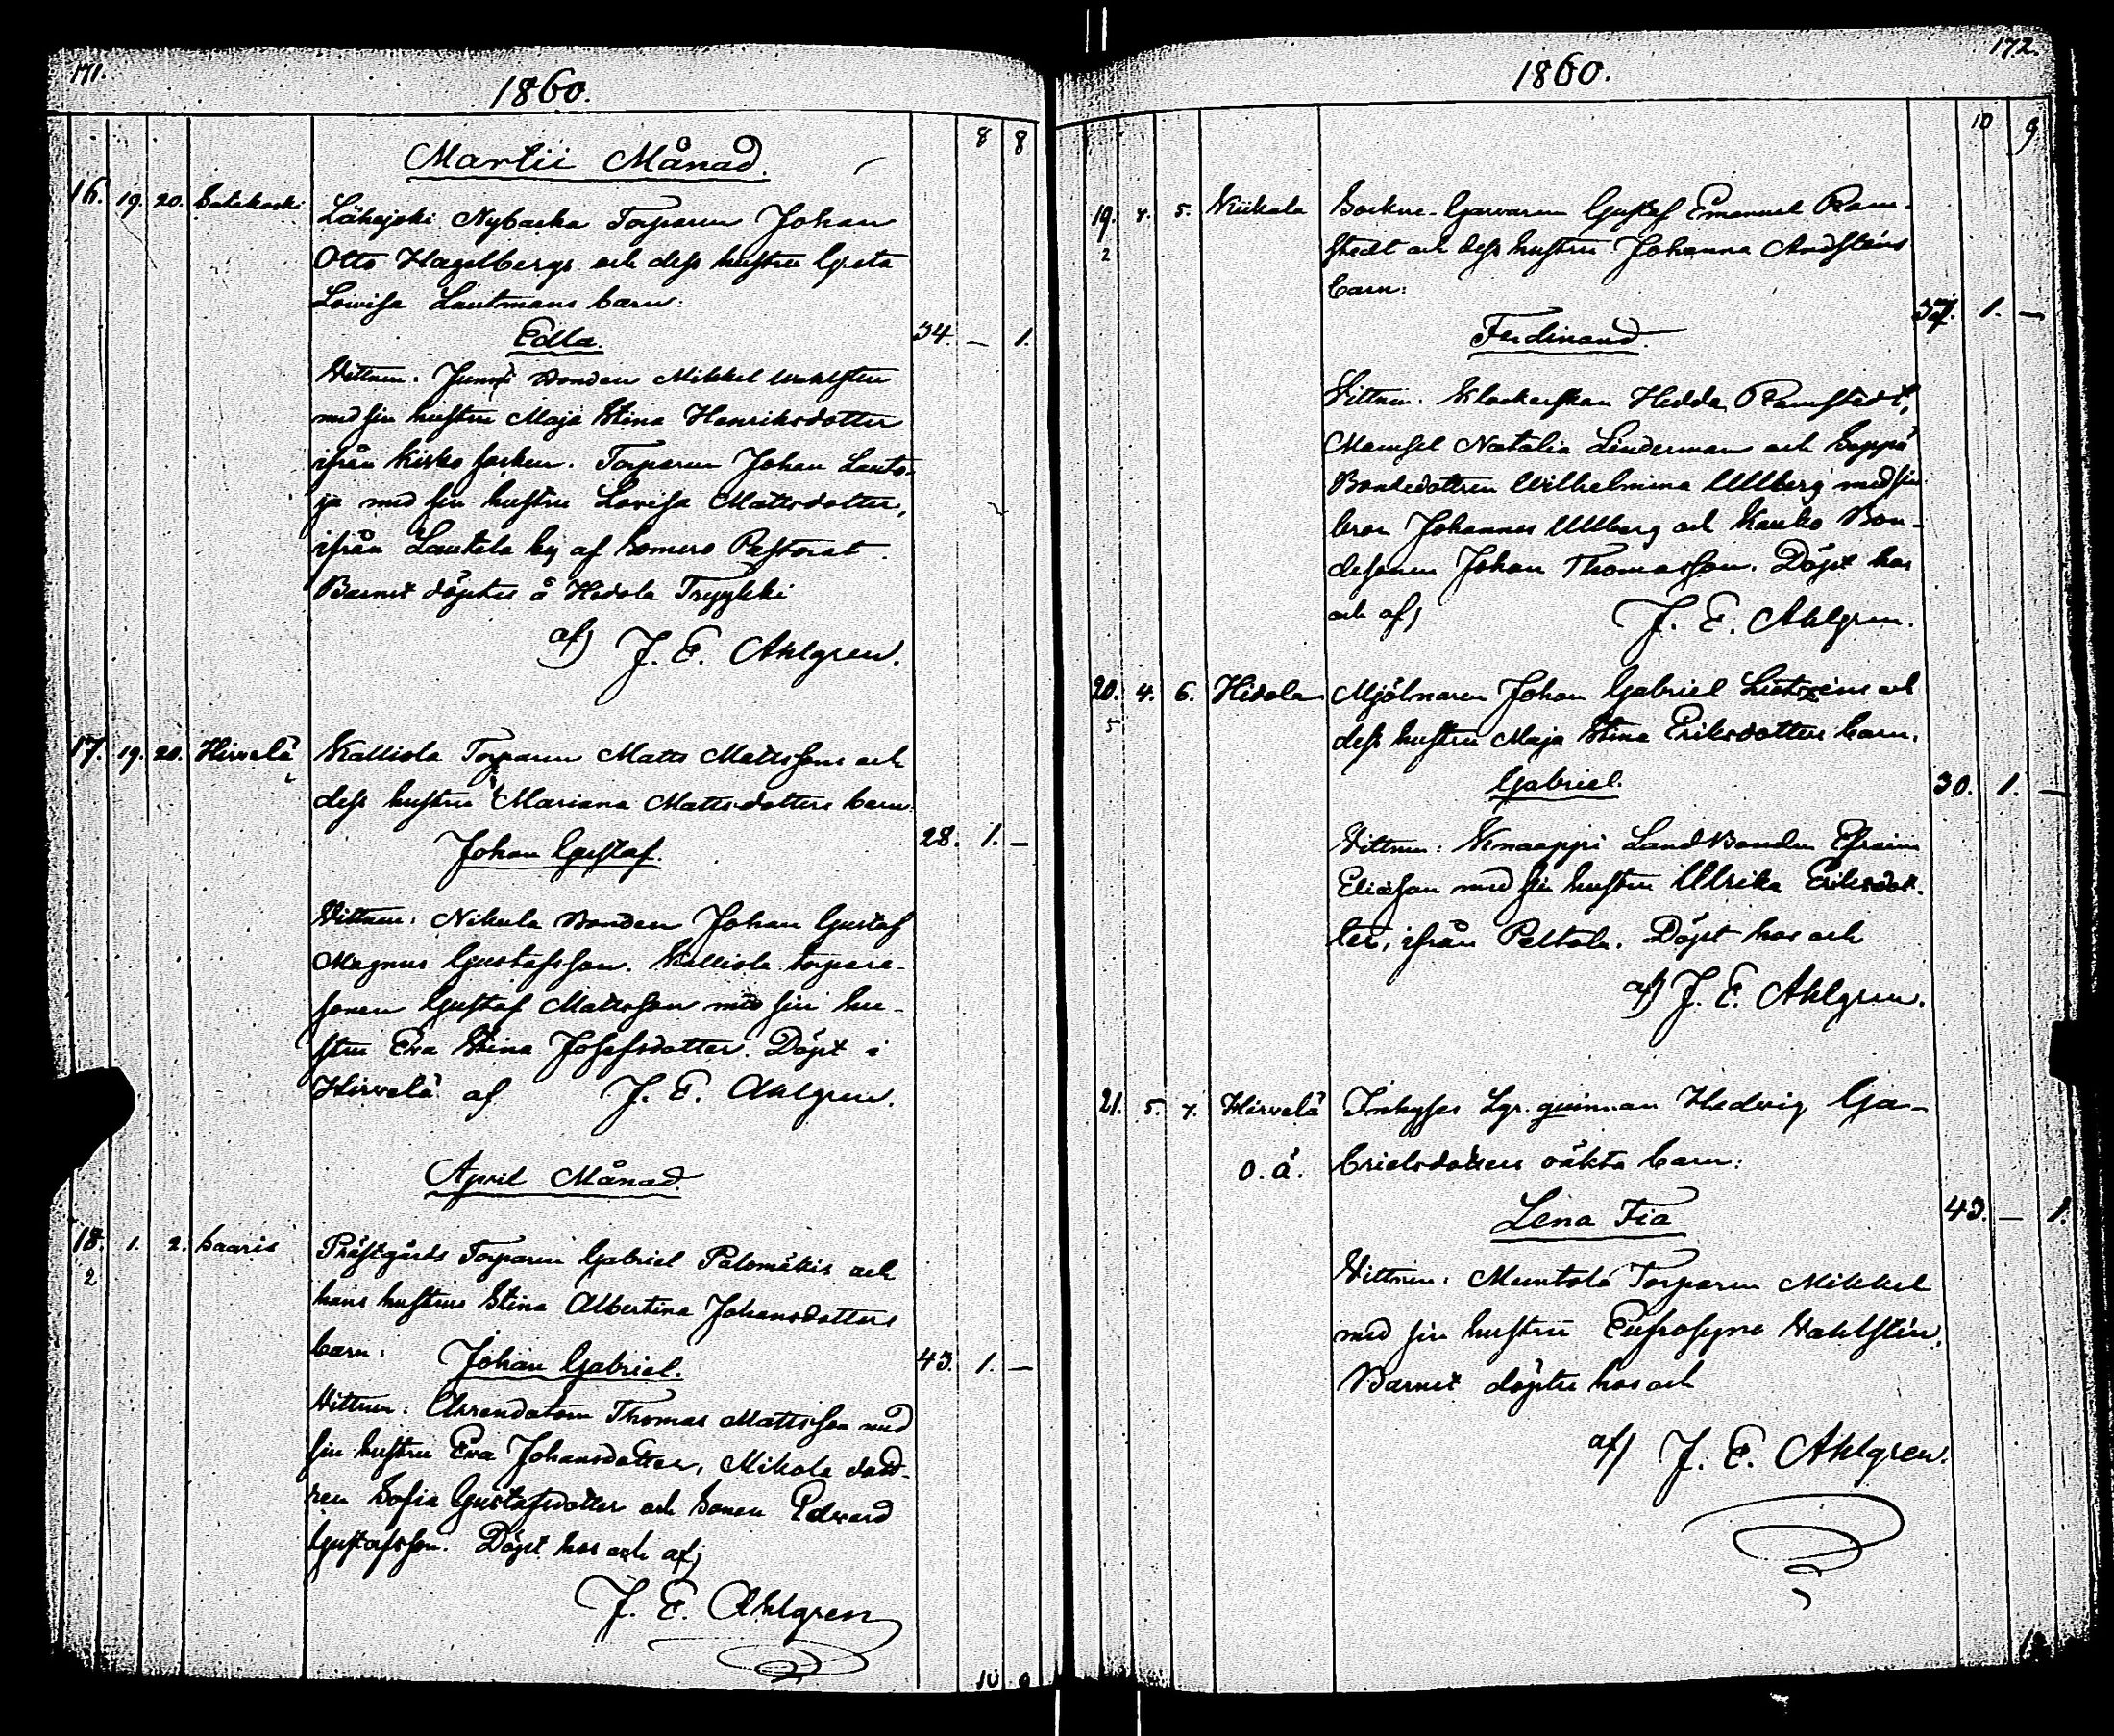 171.
1860.
8 8
Martii Månad.
16. 19. 20. Satakoski Lähejoki Nybacka Torparen Johan
Otto Hagelbergs och dess hustru Greta
Lovisa Lautmans barn:
Edla. 34. — 1.
Vittnen: Junni Bonden Mikkel Wahlsten
med sin hustru Maja Stina Henriksdotter
ifrån Kisko socken. Torparen Johan Lauto-
ja med sin hustru Lovisa Mattsdotter,
ifrån Lautela by af Somero Pastorat.
Barnet döptes å Hidola
af J. E. Ahlgren.
17. 19. 20. Hirvelä Kalliola Torparen Matts Mattssons och
dess hustru Mariana Mattsdotters barn
Johan Gustaf. 28. 1. —
Vittnen: Nikula Bonden Johan Gustaf
Magnus Gustafsson. Kalliola torpare-
sonen Gustaf Mattsson med sin hu-
stru Eva Stina Josefsdotter. Döpt i
Hirvelä af J. E. Ahlgren.
April Månad.
18. 1. 2. Saaris Prästgårds Torparen Gabriel Palomäkis och
2 hans hustrus Stina Albertina Johansdotters
barn: Johan Gabriel. 43. 1. —
Vittnen: Arrendatorn Thomas Mattsson med
sin hustru Eva Johansdotter, Mikola dott-
ren Sofia Gustafsdotter och Sonen Edvard
Gustafsson. Döpt hos och af
J. E. Ahlgren
10 9
172.
1860.
10 9
19. 4. 5. Kiikala Sockne-Garvaren Gustaf Emanuel Ram-
2 stedt och dess hustru Johanna Andsténs
barn:
Ferdinand. 37. 1. —
Vittnen: Klockarskan Hedda Ramstedt,
Mamsel Natalia Linderman och Seppä
Bondedottren Wilhelmina Ullberg med sin
bror Johannes Ullberg och Kauko Bon-
desonen Johan Thomasson. Döpt hos
och af J. E. Ahlgren.
20. 4. 6. Hidola Mjölnaren Johan Gabriel Lietzéns och
5 dess hustru Maja Stina Eriksdotters barn.
Gabriel. 30. 1. —
Vittnen: Knaappi LandBonden Efraim
Eliasson med sin hustru Ulrika Eriksdot-
ter, ifrån Peltola. Döpt hos och
af J. E. Ahlgren.
21. 5. 7. Hirvelä Inhyses Lgr. quinnan Hedvig Ga-
o.ä. brielsdotters oäkta barn:
Lena Fia 43. — 1.
Vittnen: Muntola Torparen Mikkel
med sin hustru Eufrosyne Wahlstén,
Barnet döptes hos och
af J. E. Ahlgren.